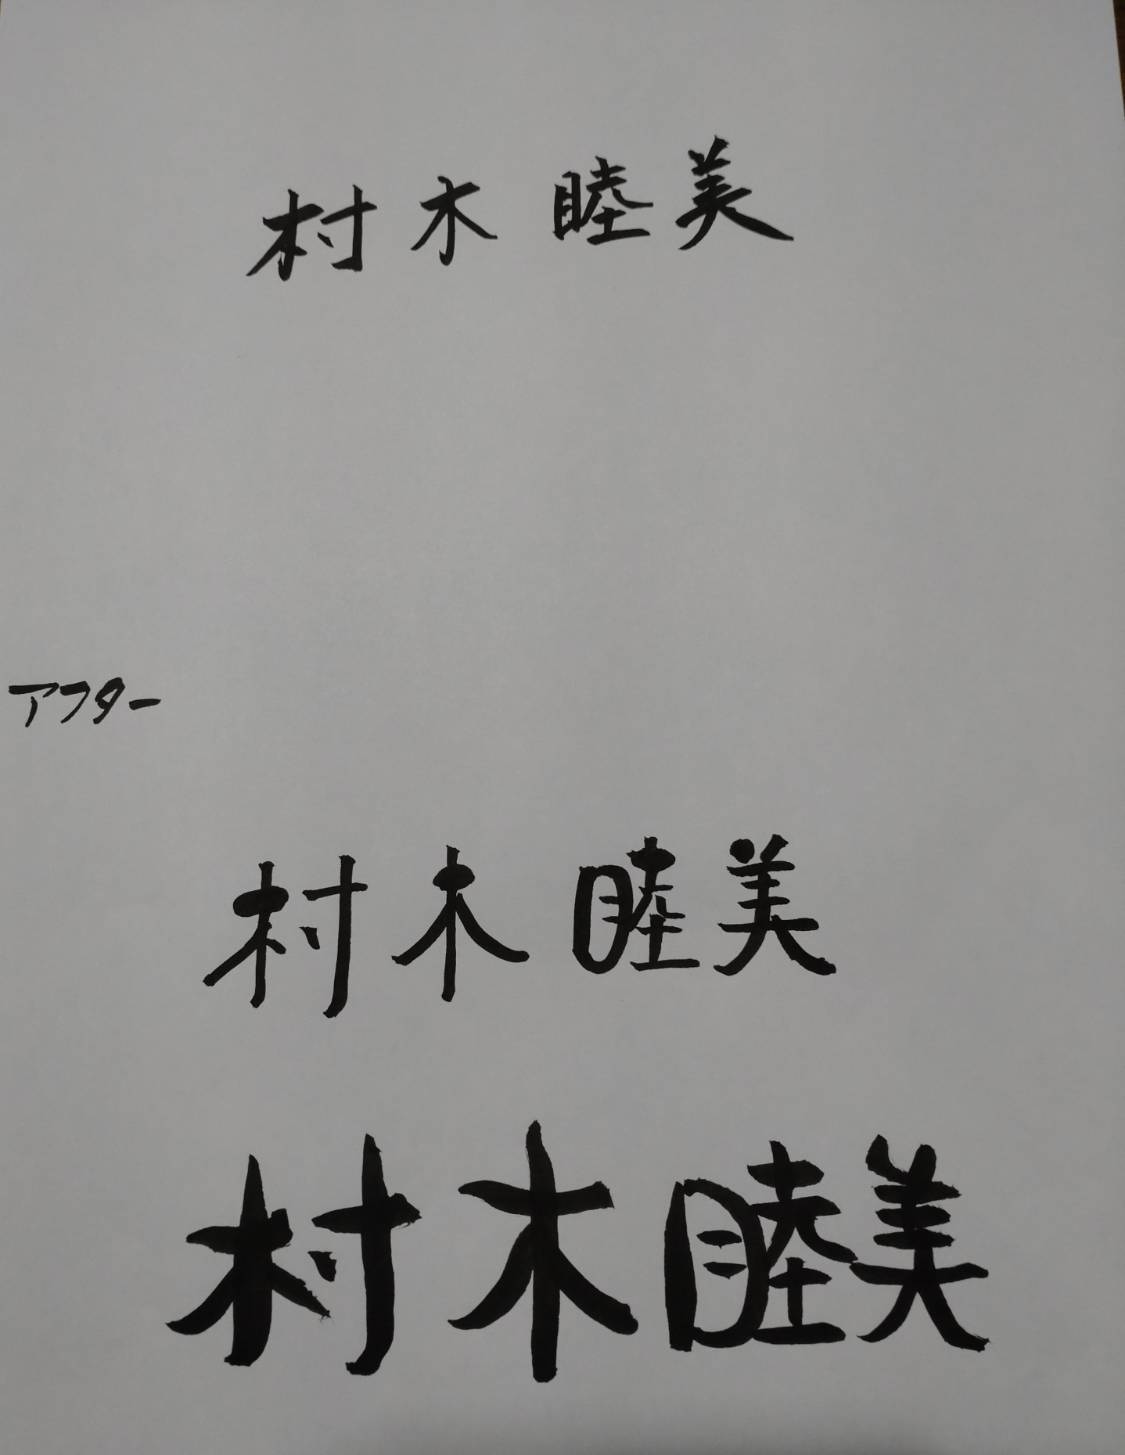 村木 睦美
アフター
村木 睦美
村木睦美